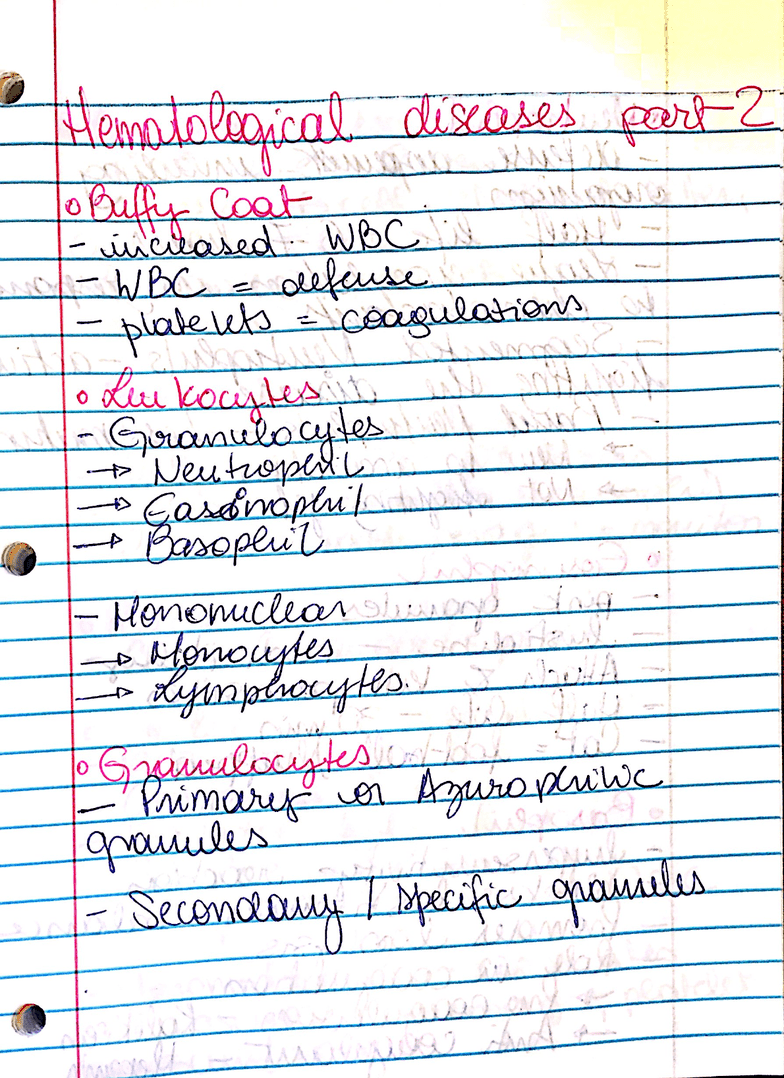 Hematological diseases part-2
Buffy Coat
- increased WBC
- WBC = defense
- platelets = coagulations
Leukocytes
- Granulocytes
→ Neutrophil
→ Eased​inophil
→ Basophil
- Mononuclear
→ Monocytes
→ Lymphocytes.
Granulocytes
- Primary or Azurophilic
granules
- Secondary / specific granules